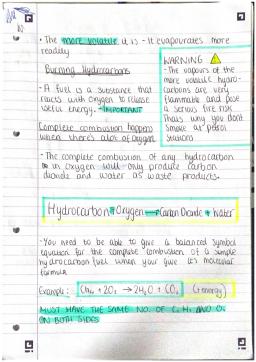 • The more volatile it is - It evapourates more
readily
Burning Hydrocarbons
WARNING
- The vapours of the
more volatile hydro-
carbons are very
flammable and pose
a serious fire risk
Thats why you don't
Smoke at petrol
Stations
- A fuel is a substance that
reacts with oxygen to release
useful energy. - IMPORTANT
Complete combustion happens
when there's alot of oxygen
- The complete combustion of any hydrocarbon
in oxygen will only produce carbon
dioxide and water as waste products.
Hydrocarbon + Oxygen → Carbon Dioxide + Water
- You need to be able to give a balanced symbol
equation for the complete combustion of a simple
hydrocarbon fuel when your give it's molecular
formula
Example: CH₄ + 2O₂ → 2H₂O + CO₂ (+ energy)
MUST HAVE THE SAME NO. OF C, H, AND O,
ON BOTH SIDES